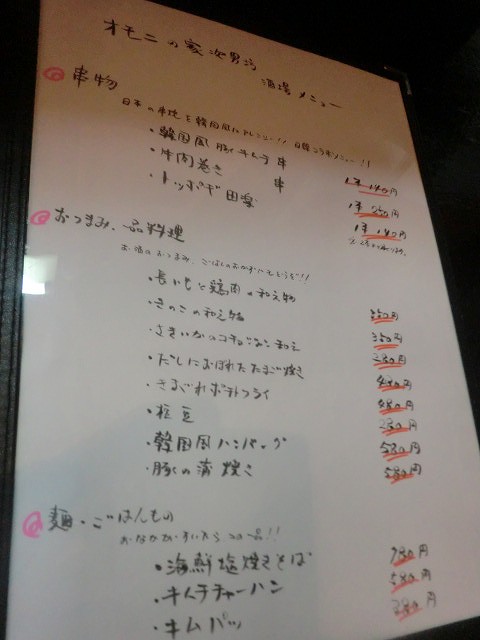 オモニの家次男坊 酒場メニュー
串物
日本の串焼を韓国風にアレンジ!! 日韓コラボメニュー!!
・韓国風 豚キムチ串 1本 140円
・牛肉巻き串 1本
・トッポギ田楽 1本 140円
おつまみ、一品料理
お酒のおつまみ、ごはんのおかずにもどうぞ!!
・長いもと鶏肉の和え物 350円
・きのこの和え物 350円
・さきいかのコチュジャン和え 280円
・だしにおぼれたたまご焼き 480円
・きまぐれポテトフライ 480円
・枝豆 280円
・韓国風ハンバーグ 580円
・豚の蒲焼き 580円
麺・ごはんもの
おなかがすいたらコの一品!!
・海鮮塩焼きそば 780円
・キムチチャーハン 580円
・キムパッ 380円